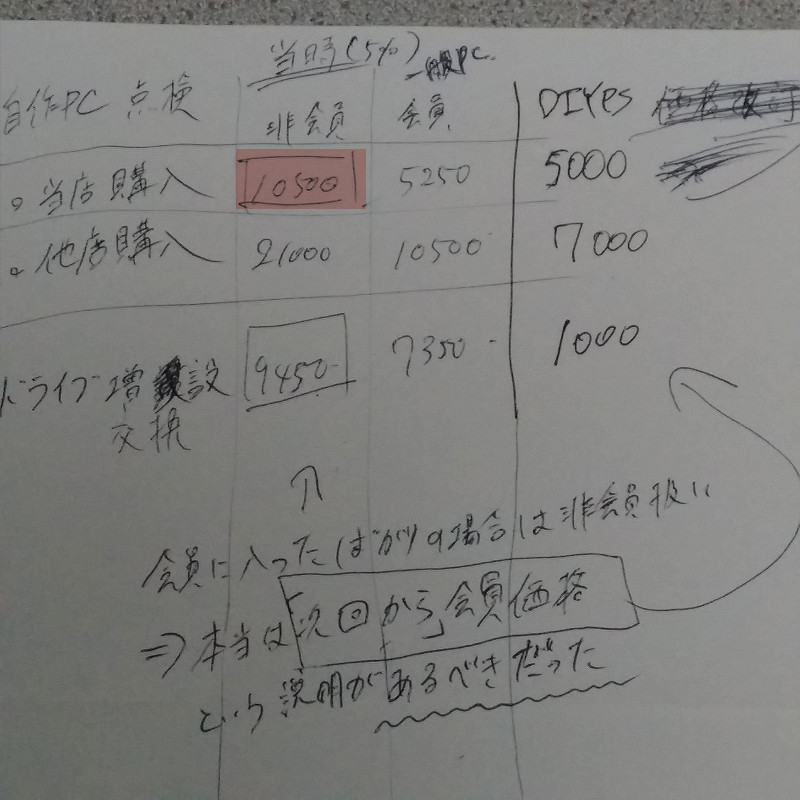 当時(5%)
一般PC.
自作PC 点検 非会員 会員 DIYPS
。当店購入 10500 5250 5000
。他店購入 21000 10500 7000
ドライブ増設 9450- 7350- 1000
交換
会員に入ったばかりの場合は非会員扱い
⇒本当は「次回から」会員価格
という説明があるべきだった